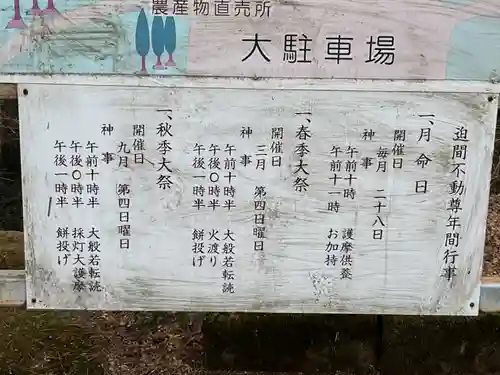 農産物直売所
大駐車場
迫間不動尊年間行事
一、月命日
開催日 毎月 二十八日
神事
午前十時 護摩供養
午前十一時 お加持
一、春季大祭
開催日 三月 第四日曜日
神事
午前十時半 大般若転読
午後〇時半 火渡り
午後一時半 餅投げ
一、秋季大祭
開催日 九月 第四日曜日
神事
午前十時半 大般若転読
午後〇時半 採灯大護摩
午後一時半 餅投げ